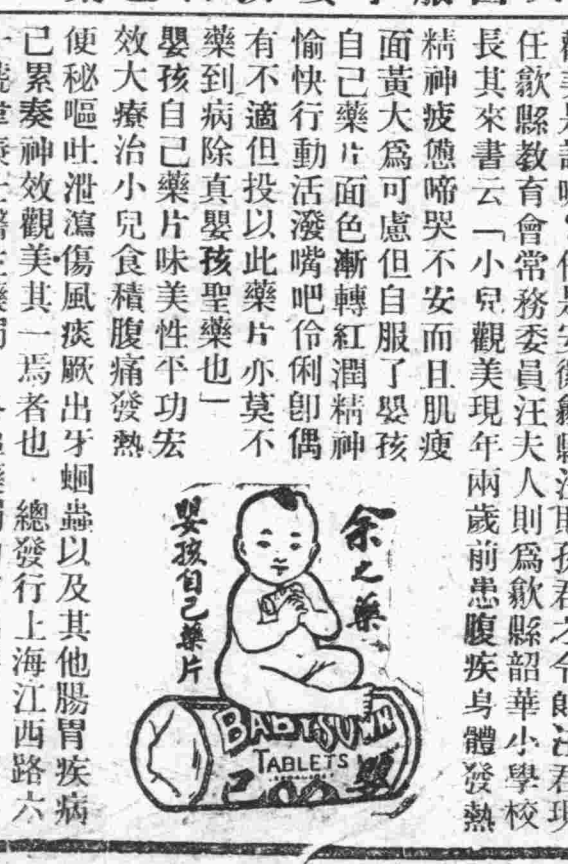 任歙縣教育會常務委員汪夫人則爲歙縣韶華小學校
長其來書云「小兒觀美現年兩歲前患腹疾身體發熱
精神疲憊啼哭不安而且肌瘦
面黃大爲可慮但自服了嬰孩
自己藥片面色漸轉紅潤精神
愉快行動活潑嘴吧伶俐卽偶
有不適但投以此藥片亦莫不
藥到病除真嬰孩聖藥也」
嬰孩自己藥片味美性平功宏
效大療治小兒食積腹痛發熱
便秘嘔吐泄瀉傷風痰厥出牙蛔蟲以及其他腸胃疾病
已累奏神效觀美其一焉者也 總發行上海江西路六
余之藥
嬰孩自己藥片
BABY'S OWN
TABLETS